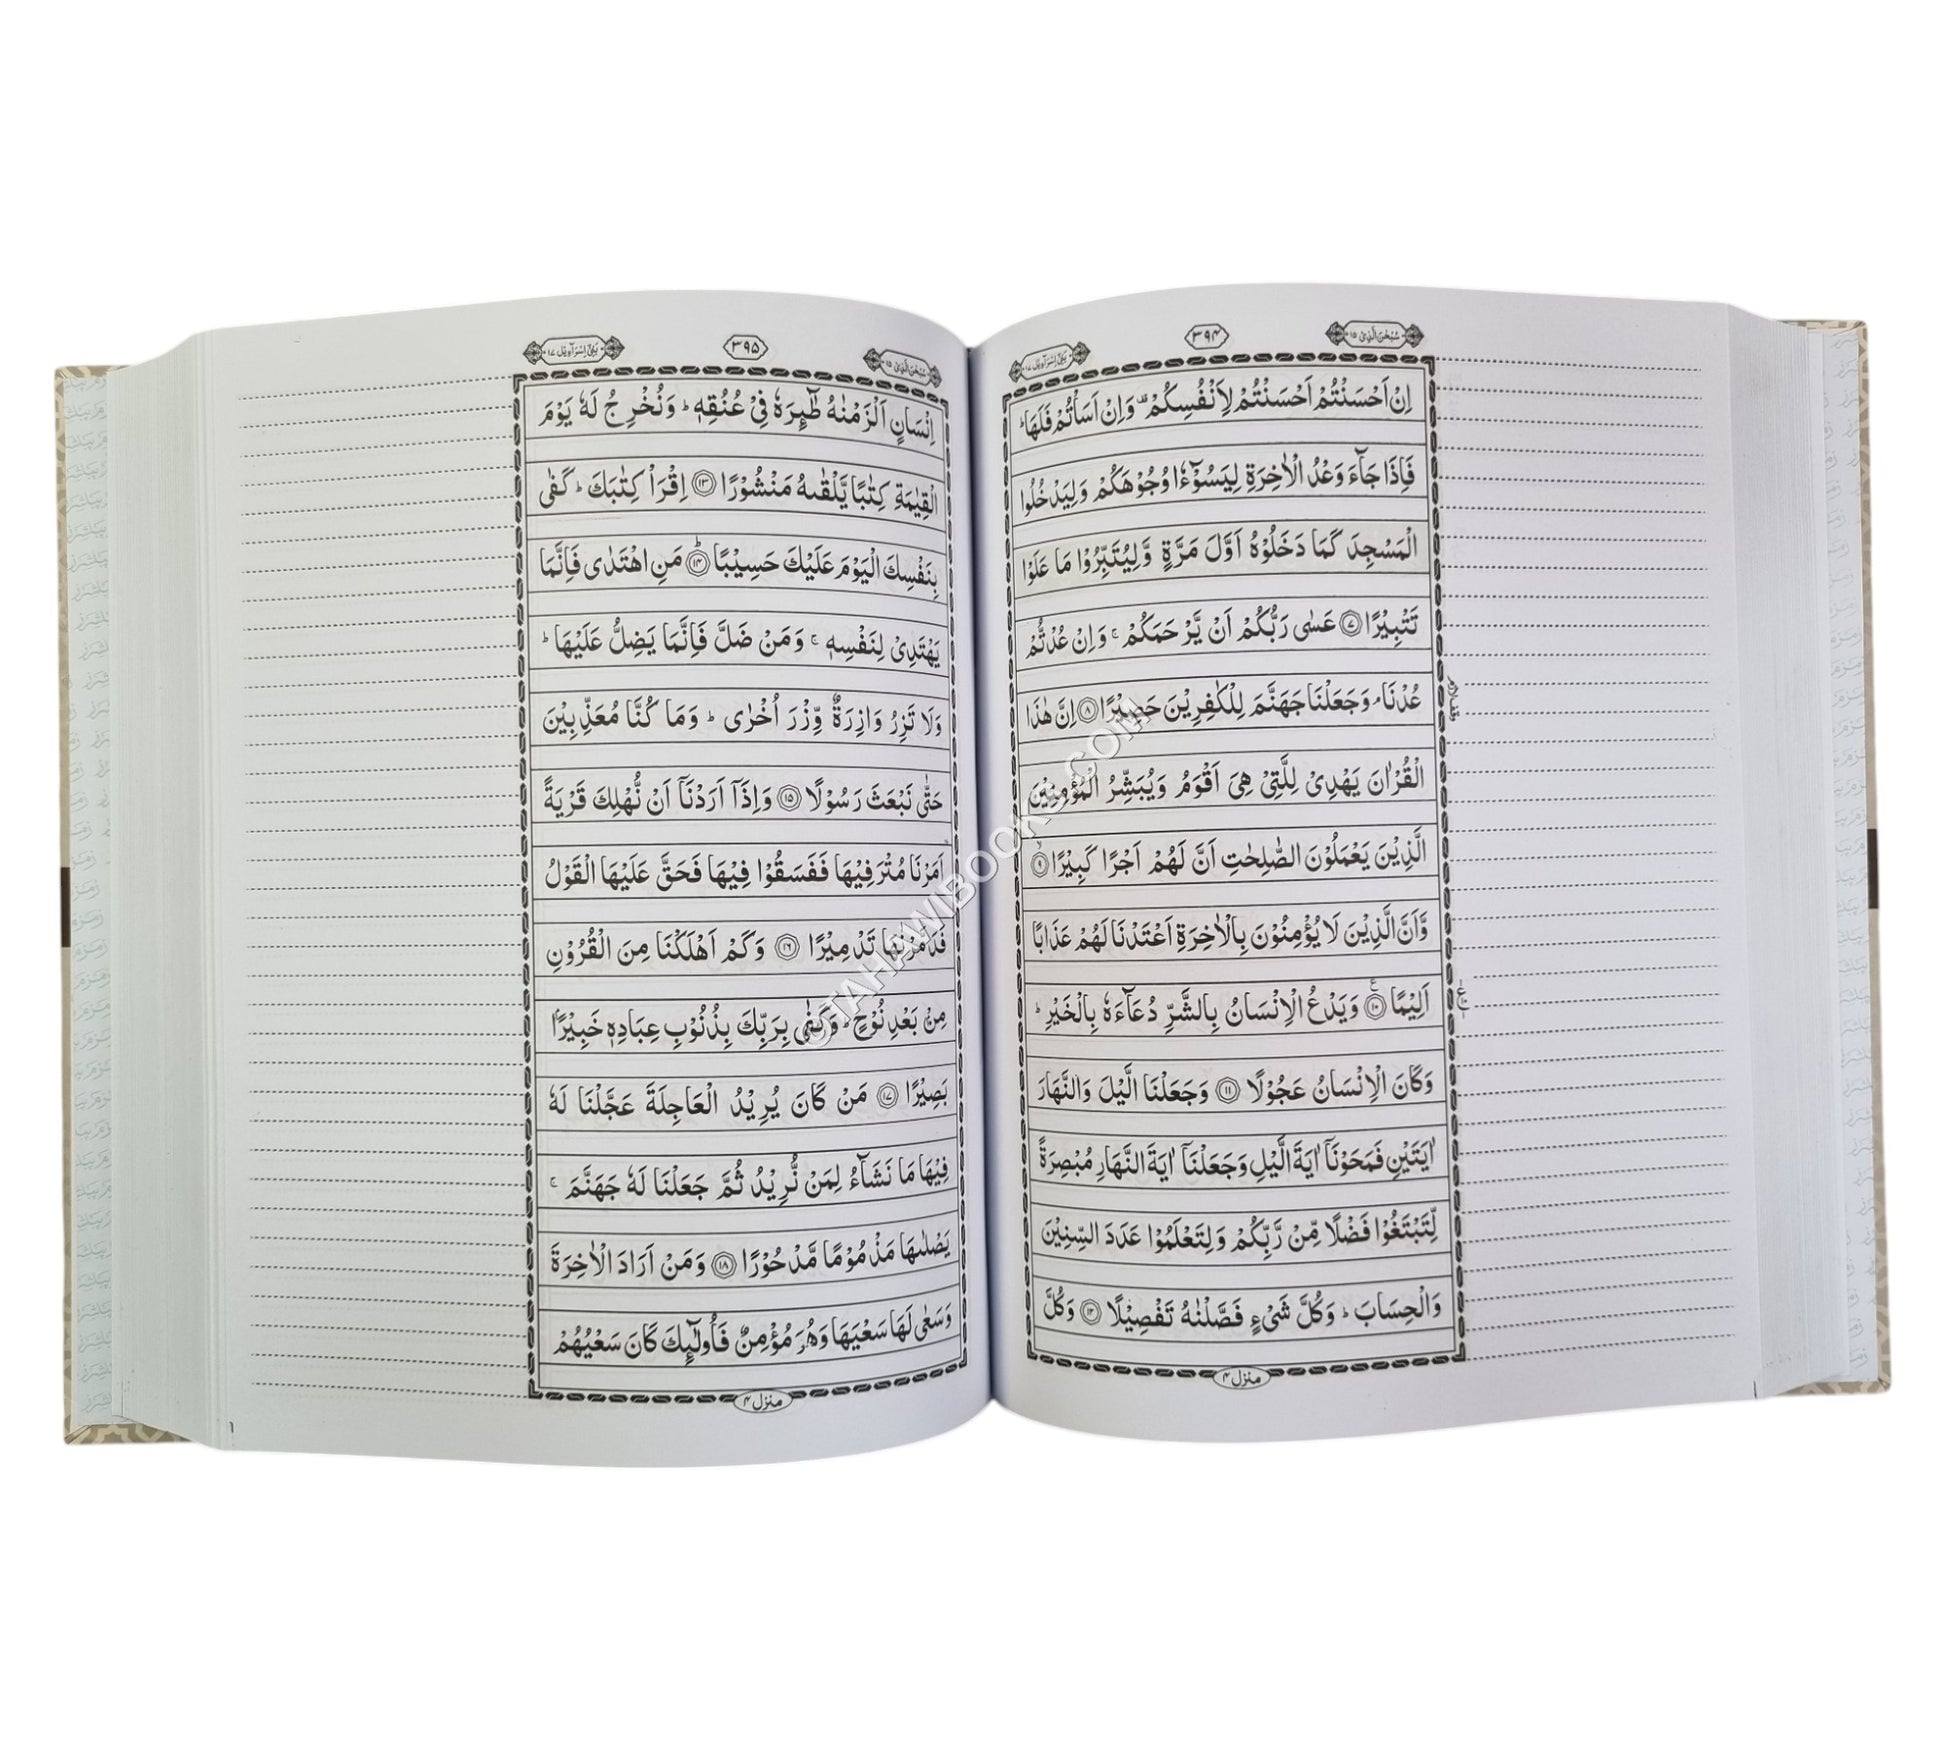 سُبْحٰنَ الَّذِیْ ١٥
٣٩٤
بَنِیْٓ اِسْرَآءِیْل ١٧
اِنْ اَحْسَنْتُمْ اَحْسَنْتُمْ لِاَنْفُسِكُمْ ۫ وَاِنْ اَسَاْتُمْ فَلَهَا ؕ
فَاِذَا جَآءَ وَعْدُ الْاٰخِرَةِ لِیَسُوْٓءٗا وُجُوْهَكُمْ وَلِیَدْخُلُوا
الْمَسْجِدَ كَمَا دَخَلُوْهُ اَوَّلَ مَرَّةٍ وَّلِیُتَبِّرُوْا مَا عَلَوْا
تَتْبِیْرًا ﴿٧﴾ عَسٰی رَبُّكُمْ اَنْ یَّرْحَمَكُمْ ۚ وَاِنْ عُدْتُّمْ
عُدْنَا ۘ وَجَعَلْنَا جَهَنَّمَ لِلْكٰفِرِیْنَ حَصِیْرًا ﴿٨﴾ اِنَّ هٰذَا
الْقُرْاٰنَ یَهْدِیْ لِلَّتِیْ هِیَ اَقْوَمُ وَیُبَشِّرُ الْمُؤْمِنِیْنَ
الَّذِیْنَ یَعْمَلُوْنَ الصّٰلِحٰتِ اَنَّ لَهُمْ اَجْرًا كَبِیْرًا ﴿٩﴾
وَّاَنَّ الَّذِیْنَ لَا یُؤْمِنُوْنَ بِالْاٰخِرَةِ اَعْتَدْنَا لَهُمْ عَذَابًا
اَلِیْمًا ﴿١٠﴾ وَیَدْعُ الْاِنْسَانُ بِالشَّرِّ دُعَآءَهٗ بِالْخَیْرِ ؕ
وَكَانَ الْاِنْسَانُ عَجُوْلًا ﴿١١﴾ وَجَعَلْنَا الَّیْلَ وَالنَّهَارَ
اٰیَتَیْنِ فَمَحَوْنَاۤ اٰیَةَ الَّیْلِ وَجَعَلْنَاۤ اٰیَةَ النَّهَارِ مُبْصِرَةً
لِّتَبْتَغُوْا فَضْلًا مِّنْ رَّبِّكُمْ وَلِتَعْلَمُوْا عَدَدَ السِّنِیْنَ
وَالْحِسَابَ ؕ وَكُلَّ شَیْءٍ فَصَّلْنٰهُ تَفْصِیْلًا ﴿١٢﴾ وَكُلَّ
منزل ٤
سُبْحٰنَ الَّذِیْ ١٥
٣٩٥
بَنِیْٓ اِسْرَآءِیْل ١٧
اِنْسَانٍ اَلْزَمْنٰهُ طٰٓئِرَهٗ فِیْ عُنُقِهٖ ؕ وَنُخْرِجُ لَهٗ یَوْمَ
الْقِیٰمَةِ كِتٰبًا یَّلْقٰىهُ مَنْشُوْرًا ﴿١٣﴾ اِقْرَاْ كِتٰبَكَ ؕ كَفٰی
بِنَفْسِكَ الْیَوْمَ عَلَیْكَ حَسِیْبًا ﴿١٤﴾ؕ مَنِ اهْتَدٰی فَاِنَّمَا
یَهْتَدِیْ لِنَفْسِهٖ ۚ وَمَنْ ضَلَّ فَاِنَّمَا یَضِلُّ عَلَیْهَا ؕ
وَلَا تَزِرُ وَازِرَةٌ وِّزْرَ اُخْرٰی ؕ وَمَا كُنَّا مُعَذِّبِیْنَ
حَتّٰی نَبْعَثَ رَسُوْلًا ﴿١٥﴾ وَاِذَاۤ اَرَدْنَاۤ اَنْ نُّهْلِكَ قَرْیَةً
اَمَرْنَا مُتْرَفِیْهَا فَفَسَقُوْا فِیْهَا فَحَقَّ عَلَیْهَا الْقَوْلُ
فَدَمَّرْنٰهَا تَدْمِیْرًا ﴿١٦﴾ وَكَمْ اَهْلَكْنَا مِنَ الْقُرُوْنِ
مِنْۢ بَعْدِ نُوْحٍ ؕ وَكَفٰی بِرَبِّكَ بِذُنُوْبِ عِبَادِهٖ خَبِیْرًۢا
بَصِیْرًا ﴿١٧﴾ مَنْ كَانَ یُرِیْدُ الْعَاجِلَةَ عَجَّلْنَا لَهٗ
فِیْهَا مَا نَشَآءُ لِمَنْ نُّرِیْدُ ثُمَّ جَعَلْنَا لَهٗ جَهَنَّمَ ۚ
یَصْلٰىهَا مَذْمُوْمًا مَّدْحُوْرًا ﴿١٨﴾ وَمَنْ اَرَادَ الْاٰخِرَةَ
وَسَعٰی لَهَا سَعْیَهَا وَهُوَ مُؤْمِنٌ فَاُولٰٓئِكَ كَانَ سَعْیُهُمْ
منزل ٤
© TAHAWIBOOKS.COM